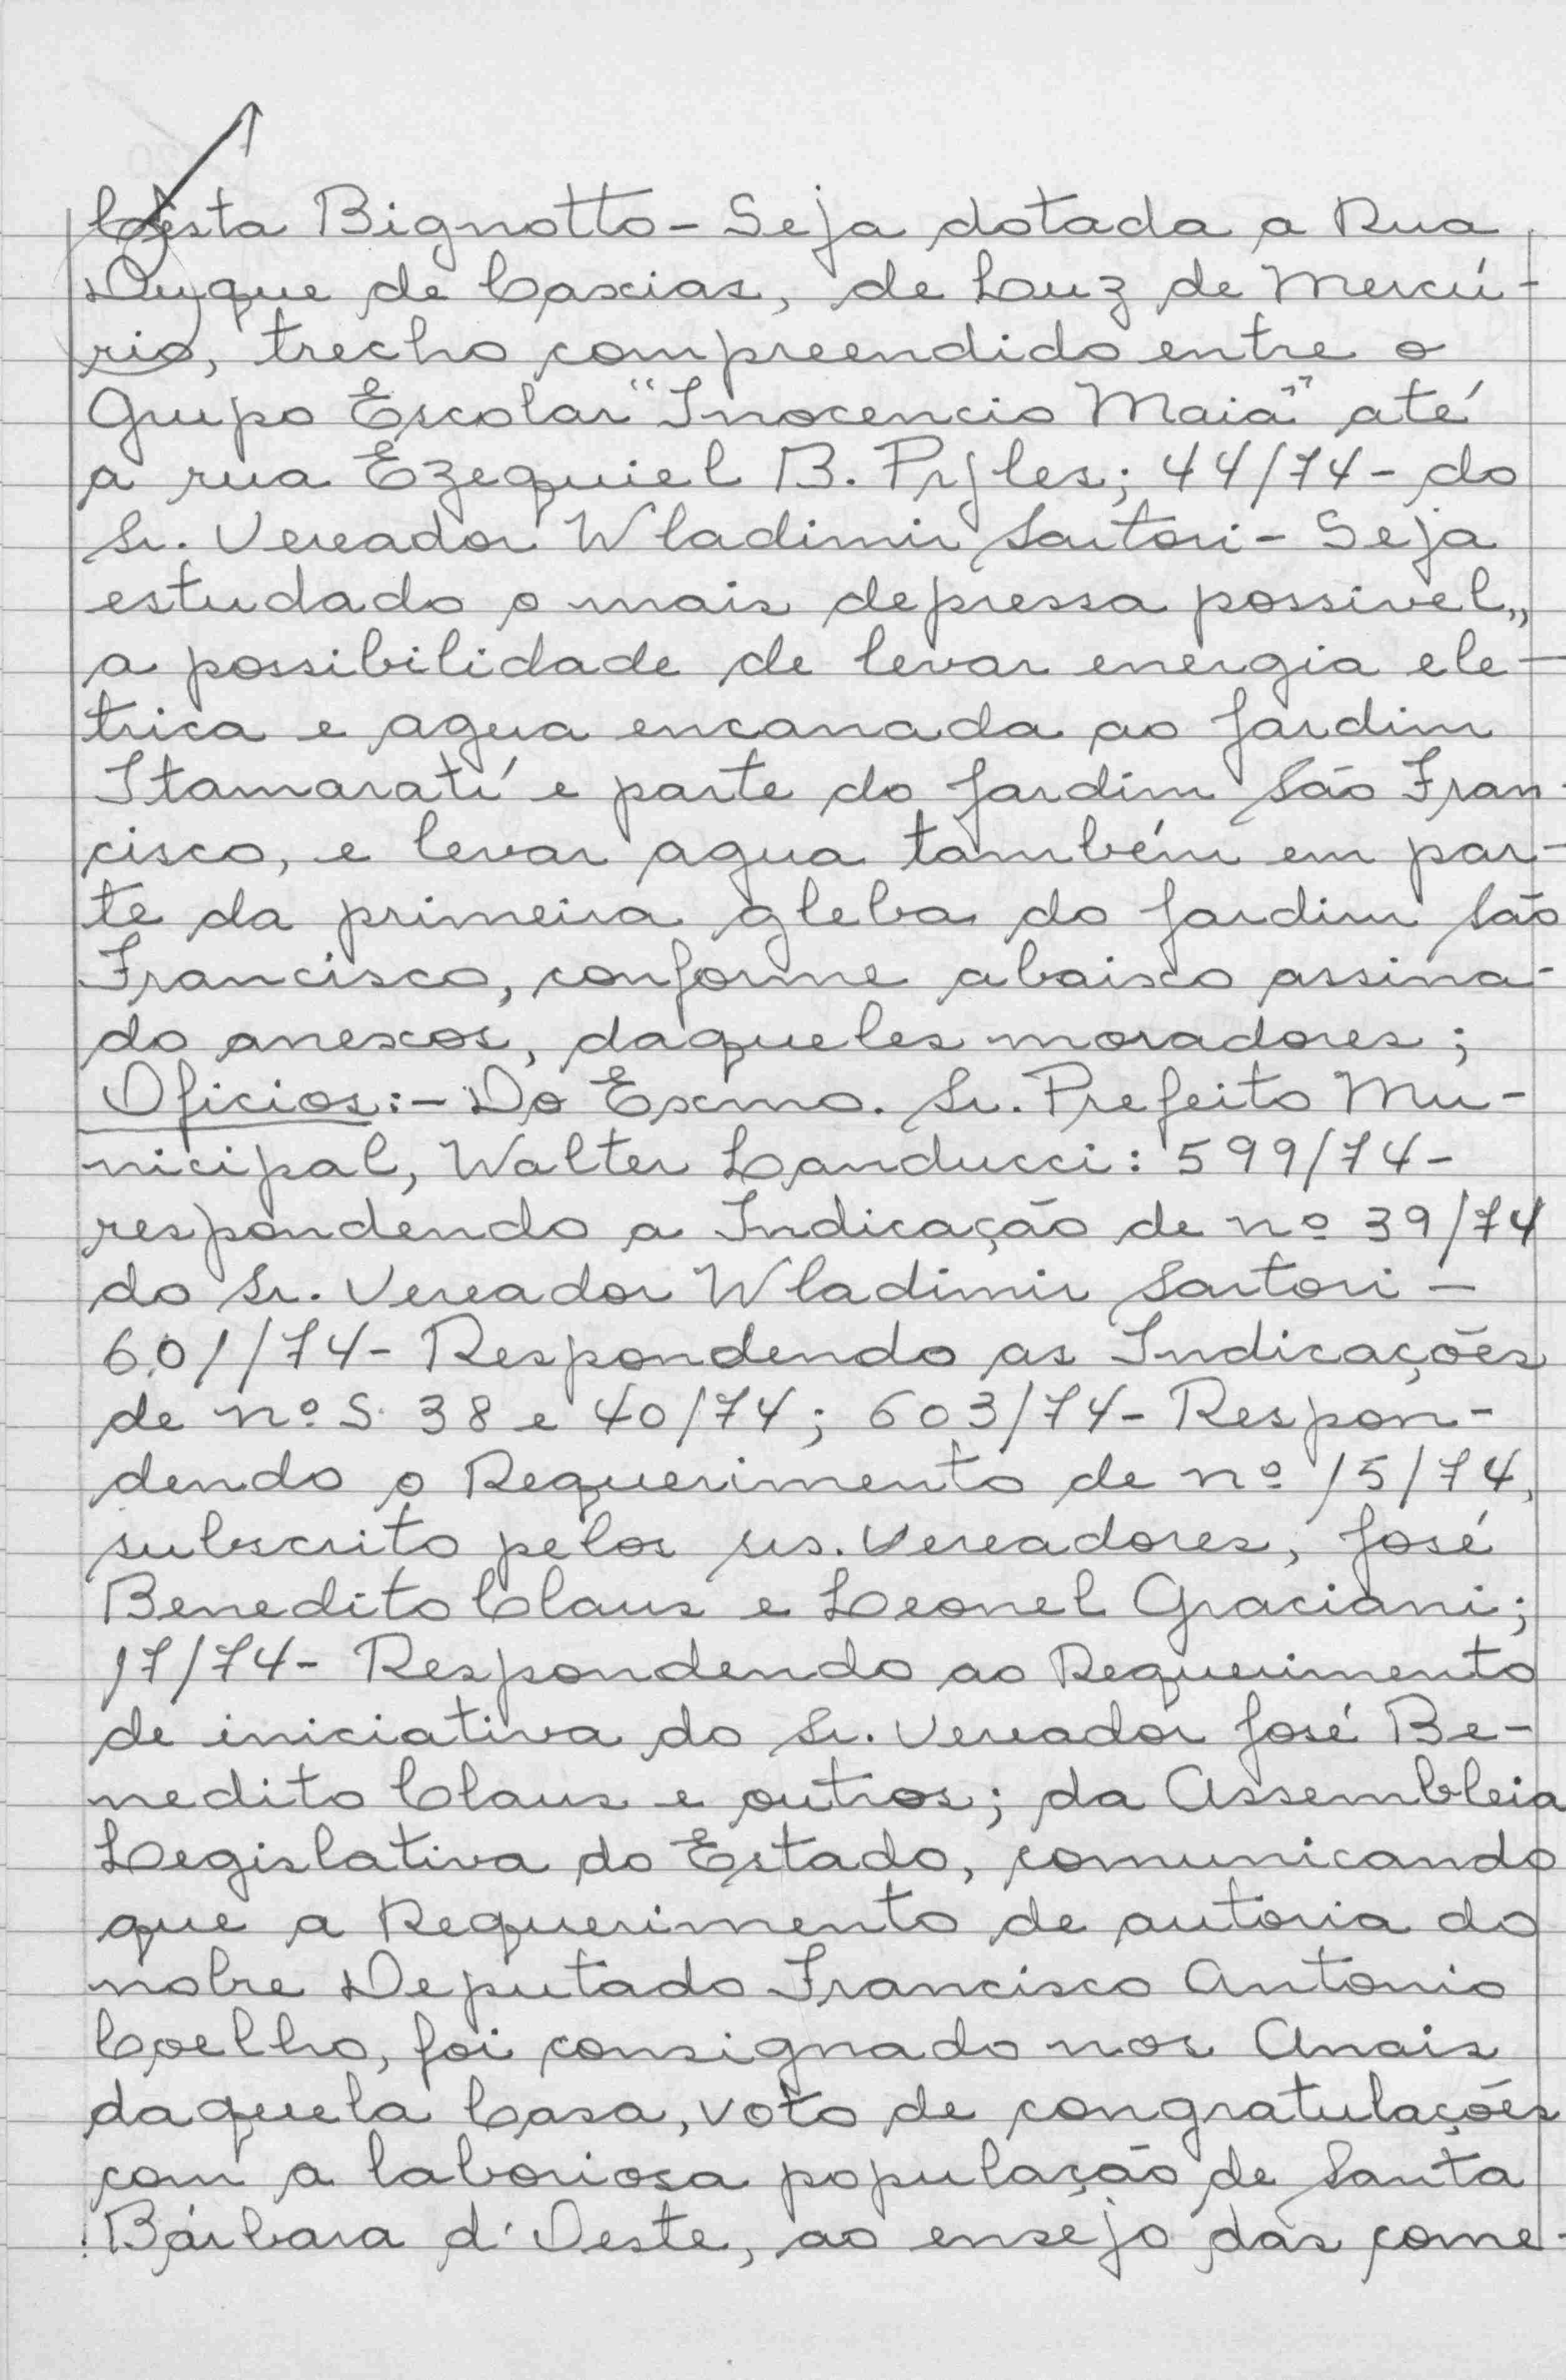 Costa Bignotto - Seja dotada a Rua
Duque de Caxias, de Luz de Mercú-
rio, trecho compreendido entre o
Grupo Escolar "Inocencio Maia" até
a rua Ezequiel B. Pyles; 44/74 - do
Sr. Vereador Wladimir Sartori - Seja
estudado o mais depressa possivel,,
a possibilidade de levar energia ele-
trica e agua encanada ao Jardim
Itamaratí e parte do Jardim São Fran-
cisco, e levar agua também em par-
te da primeira gleba do Jardim São
Francisco, conforme abaixo assina-
do anexos, daqueles moradores;
Oficios:- Do Exmo. Sr. Prefeito Mu-
nicipal, Walter Landucci: 599/74 -
respondendo a Indicação de nº 39/74
do Sr. Vereador Wladimir Sartori -
601/74 - Respondendo as Indicações
de nº.S. 38 e 40/74; 603/74 - Respon-
dendo o Requerimento de nº 15/74,
subscrito pelos srs. Vereadores, José
Benedito Claus e Leonel Graciani;
17/74 - Respondendo ao Requerimento
de iniciativa do Sr. Vereador José Be-
nedito Claus e outros; da Assembleia
Legislativa do Estado, comunicando
que a Requerimento de autoria do
nobre Deputado Francisco Antonio
Coelho, foi consignado nos Anais
daquela Casa, voto de congratulações
com a laboriosa população de Santa
Bárbara d'Oeste, ao ensejo das come-